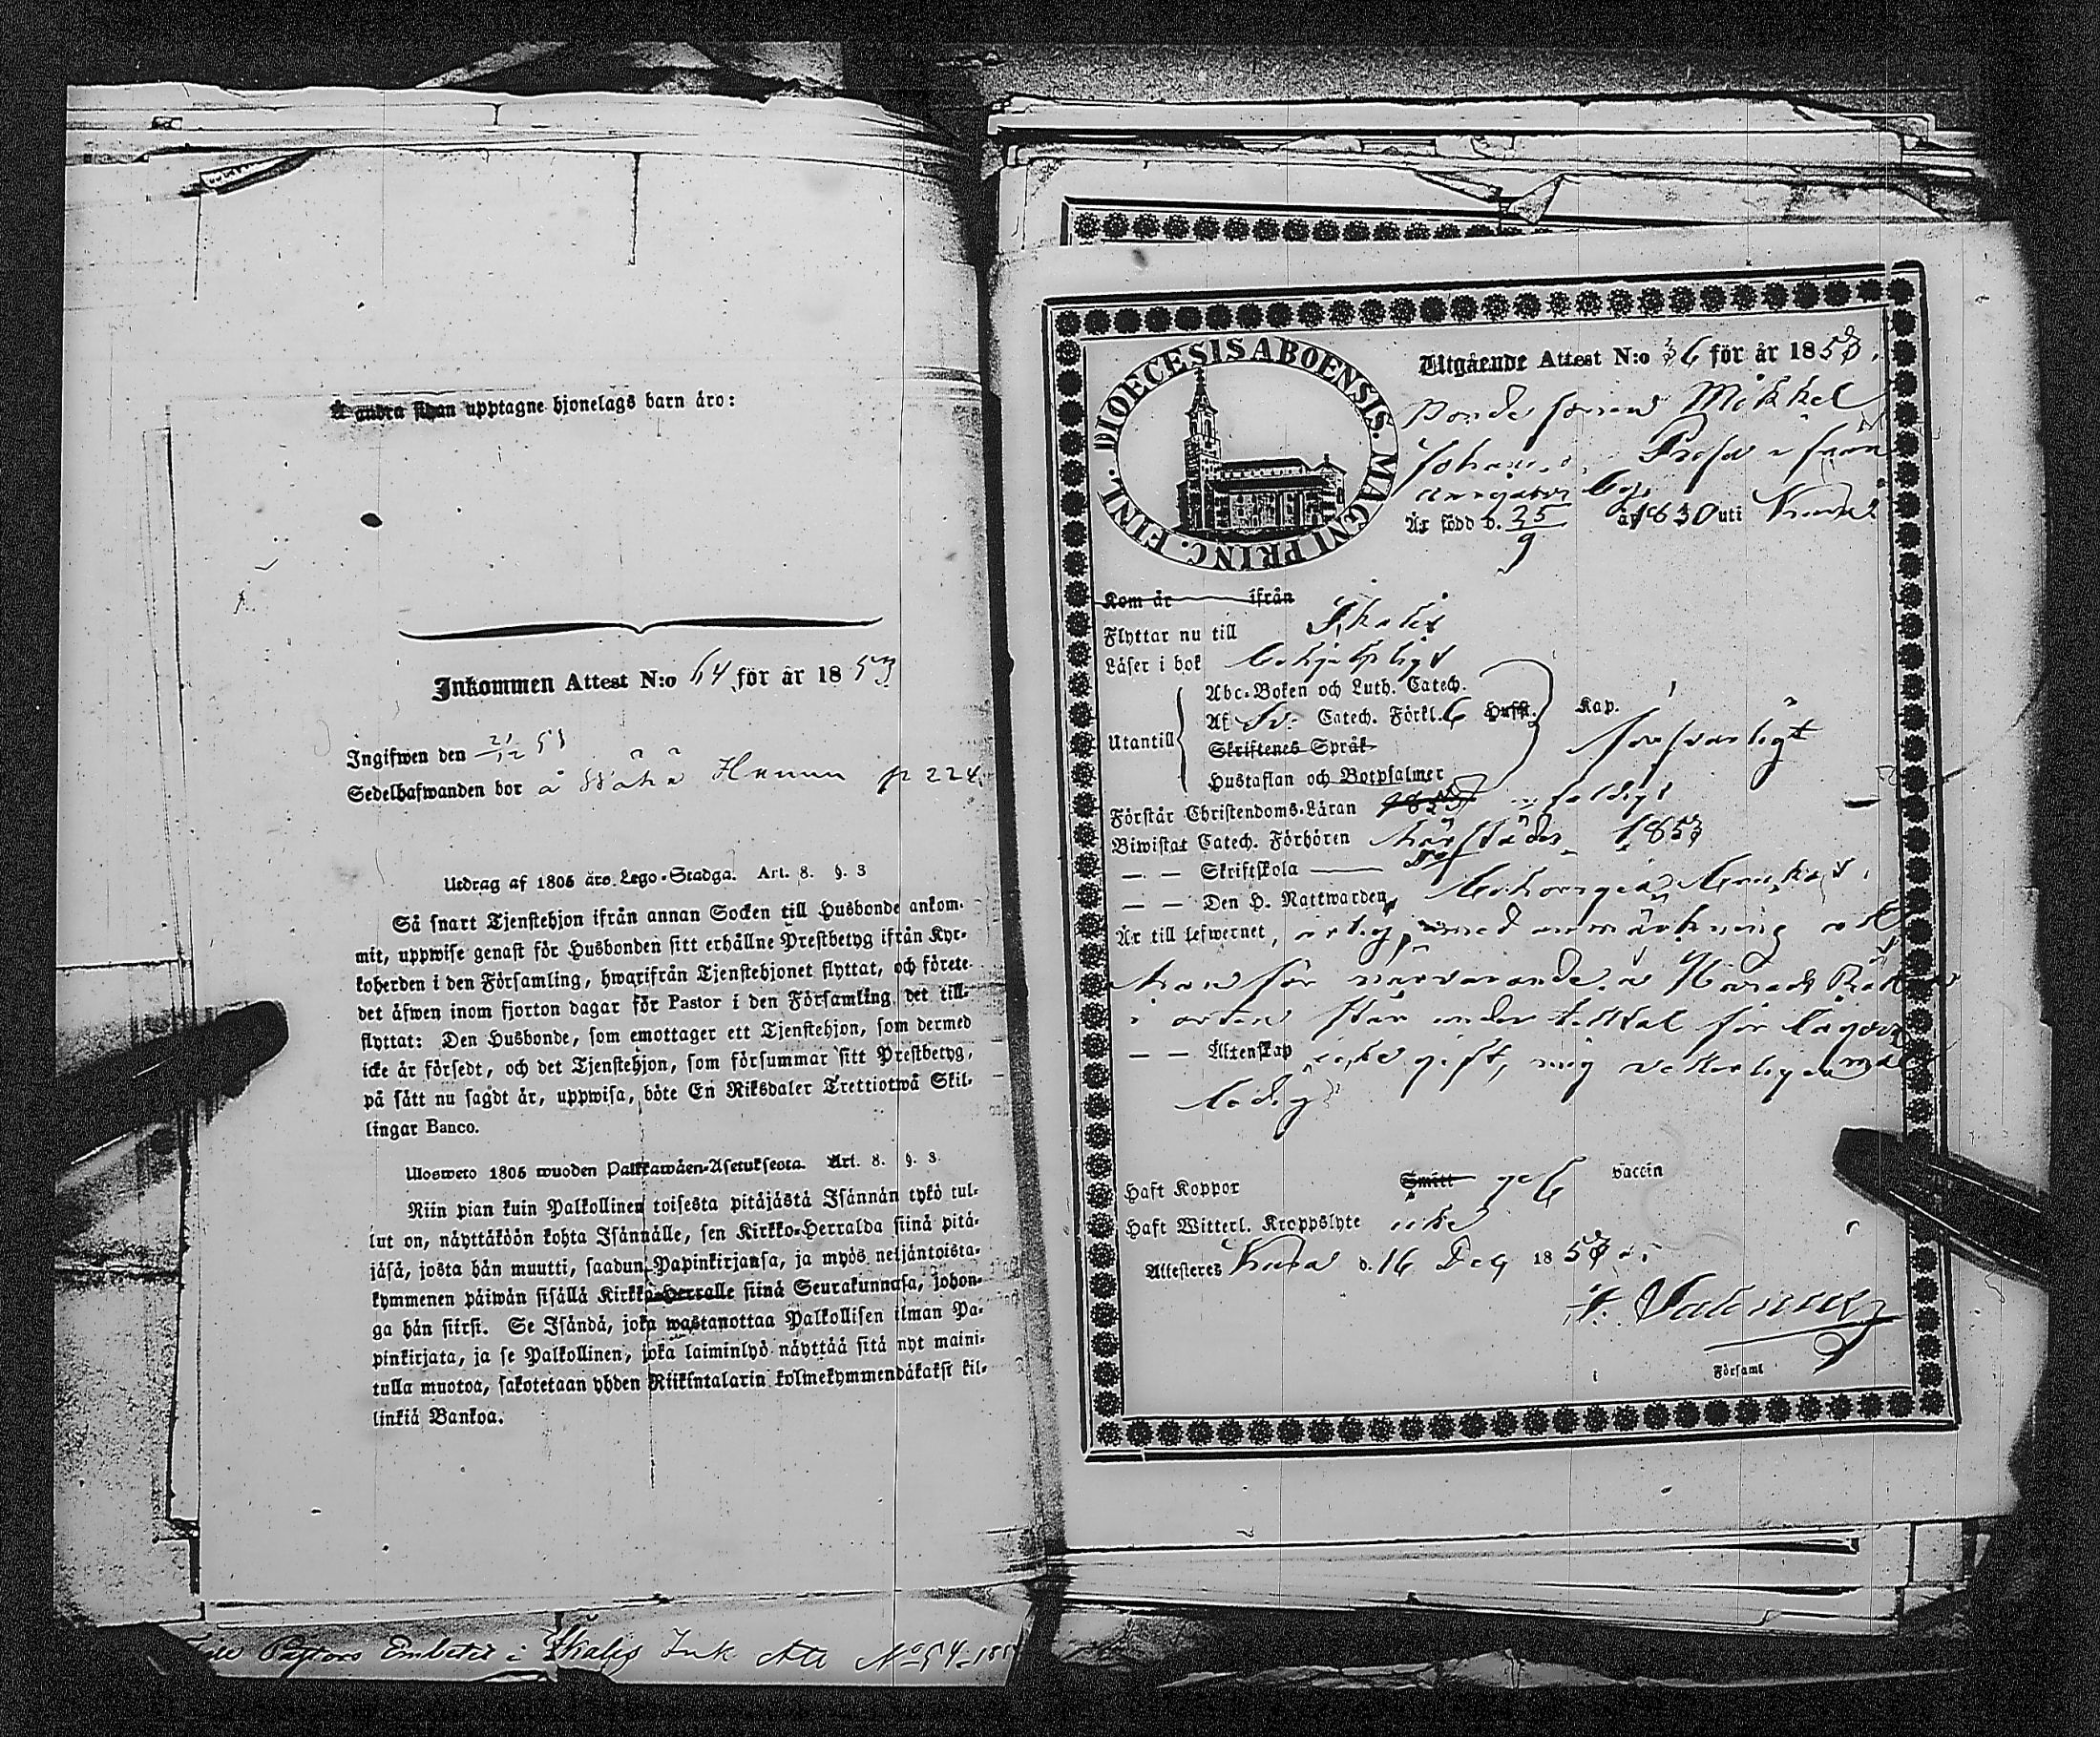 Å andra sidan upptagne hjonelags barn äro:
Inkommen Attest N:o 64 för år 1853
Ingifwen den 21/12 53
Sedelhafwanden bor å p 224
Utdrag af 1805 års Lego-Stadga. Art. 8. §. 3
Så snart Tjenstehjon ifrån annan Socken till Husbonde ankom-
mit, uppwise genast för Husbonden sitt erhållne Prestbetyg ifrån Kyr-
koherden i den Församling, hwarifrån Tjenstehjonet flyttat, och förete
det äfwen inom fjorton dagar för Pastor i den Församling det till-
flyttat: Den Husbonde, som emottager ett Tjenstehjon, som dermed
icke är försedt, och det Tjenstehjon, som försummar sitt Prestbetyg,
på sätt nu sagdt är, uppwisa, böte En Riksdaler Trettiotwå Skil-
lingar Banco.
Ulosweto 1805 wuoden Palkkawäen-Asetuksesta. Art. 8. §. 3.
Niin pian kuin Palkollinen toisesta pitäjästä Isännän tykö tul-
lut on, näyttäköön kohta Isännälle, sen Kirkko-Herralda siinä pitä-
jäsä, josta hän muutti, saadun Papinkirjansa, ja myös neljäntoista-
kymmenen päiwän sisällä Kirkko-Herralle siinä Seurakunnasa, johon-
ga hän siirsi. Se Isändä, joka wastanottaa Palkollisen ilman Pa-
pinkirjata, ja se Palkollinen, joka laiminlyö näyttää sitä nyt maini-
tulla muotoa, sakotetaan yhden Riikintalarin kolmekymmendäkaksi kil-
linkiä Bankoa.
Pastors Embetet i Ink. Att No 54
DIOECESIS ABOENSIS. MAGNI PRINC. FINL.
Utgående Attest N:o 36 för år 1853.
Bonde sonen Mikkel
Johansson från
Är född d. 25/9 år 1830 uti
Kom år ifrån
Flyttar nu till
Läser i bok behjelpligt
Utantill
Abc-Boken och Luth. Catech.
Af Sv. Catech. Förkl. 6 Hufst. Kap.
Skriftenes Språk försvarligt
Hustaflan och Botpsalmer
Förstår Christendoms-Läran
Biwistat Catech. Förhören härstädes 1853
— — Skriftskola
— — Den H. Nattwarden, behörigen
Är till lefwernet, ärlig, med anmärkning att
han för närvarande Härads Rätten
i orten står under tilltal för lägers
— — Äktenskap icke gift, mig veterligen mål
ledig
Haft Koppor Smitt vaccin
Haft Witterl. Kroppslyte icke
Attesteras d. 16 Dec 1853
Församl